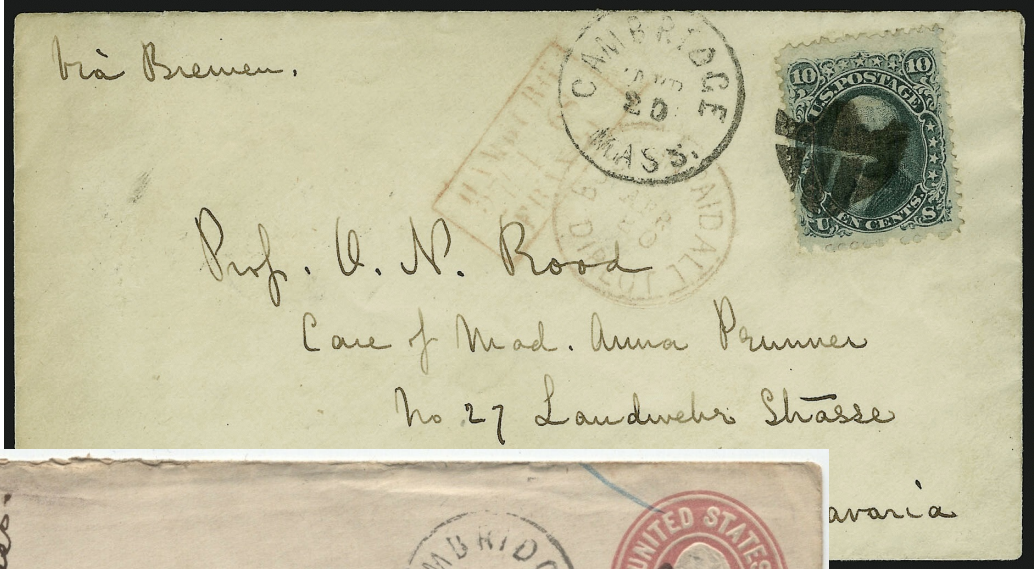 via Bremen.
CAMBRIDGE
20
MASS.
10 10
U.S. POSTAGE
TEN CENTS.
U. S.
PAID ALL
Prof. O. N. Rood
Care of Mad. Anna Prunner
No. 27 Landwehr Strasse
avaria
MBRIDG
UNITED STATES